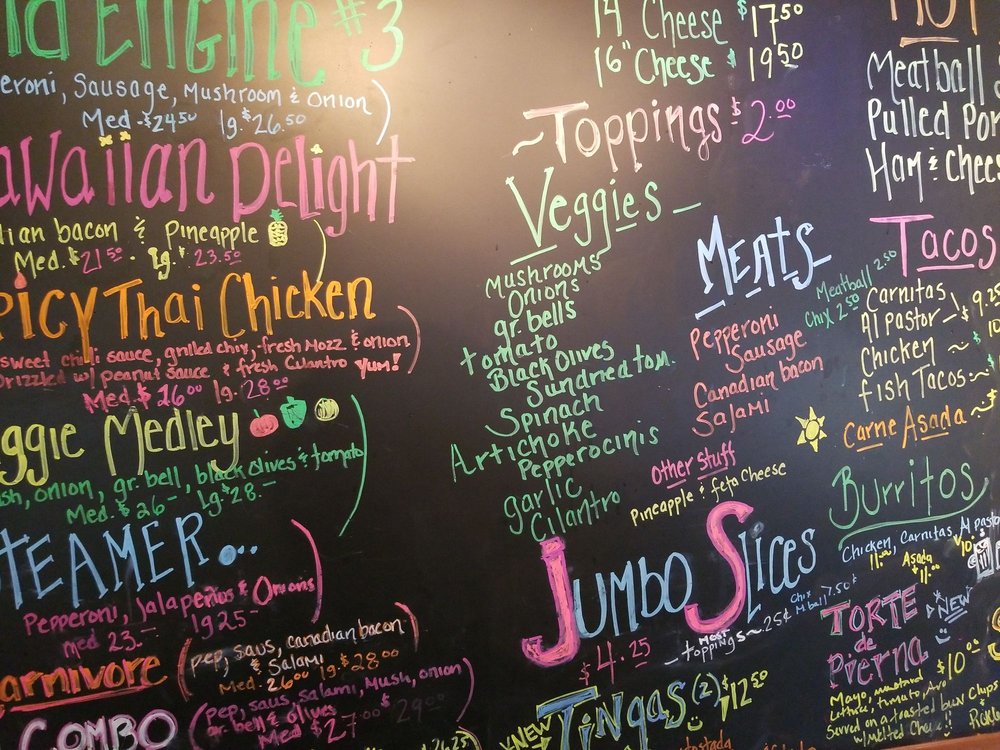 Engine #3
eroni, Sausage, Mushroom & Onion
Med - $24.50 lg. $26.50
awaiian Delight
dian bacon & Pineapple
Med. $21.50 - lg. $23.50
picy Thai Chicken
sweet chili sauce, grilled chix, fresh Mozz & onion
Drizzled w/ peanut sauce & fresh Cilantro yum!
Med $26.00 lg. $28.00
eggie Medley
sh, onion, gr. bell, black olives & tomato
Med. $26- lg. $28.-
STEAMER...
Pepperoni, Jalapeños & Onions
med 23.- lg 25-
arnivore
(pep, saus, canadian bacon
& Salami
Med. 26.00 lg. $28.00
COMBO
(pep, saus, salami, Mush, onion)
gr. bell & olives
Med $27.00 $29.00
26.25
14 Cheese $17.50
16" Cheese $19.50
~Toppings $2.00
Veggies -
Mushrooms
Onions
gr. bells
tomato
Black Olives
Sundried tom.
Spinach
Artichoke
Pepperocinis
garlic
Cilantro
Meats
Meatball 2.50
Chix 2.50
Pepperoni
Sausage
Canadian bacon
Salami
Other Stuff
Pineapple & feta Cheese
Jumbo Slices
$4.25
most toppings ~ .25¢
Chix
M.ball 7.50¢
NEW
Tingas (2) $12.50
tostada
HOT
Meatball
Pulled Por
Ham & Chees
Tacos
Carnitas
Al pastor - $9.25
Chicken ~ $
fish Tacos: ~
Carne Asada ~
Burritos
Chicken, Carnitas, Al pasto
11.00 Asada $11.00 10.
TORTE de Pierna
NEW
$10.00
Mayo, mustard
Lettuce, tomato, Avo
Served on a toasted bun Chips
w/Melted Cheese!!
Pickl